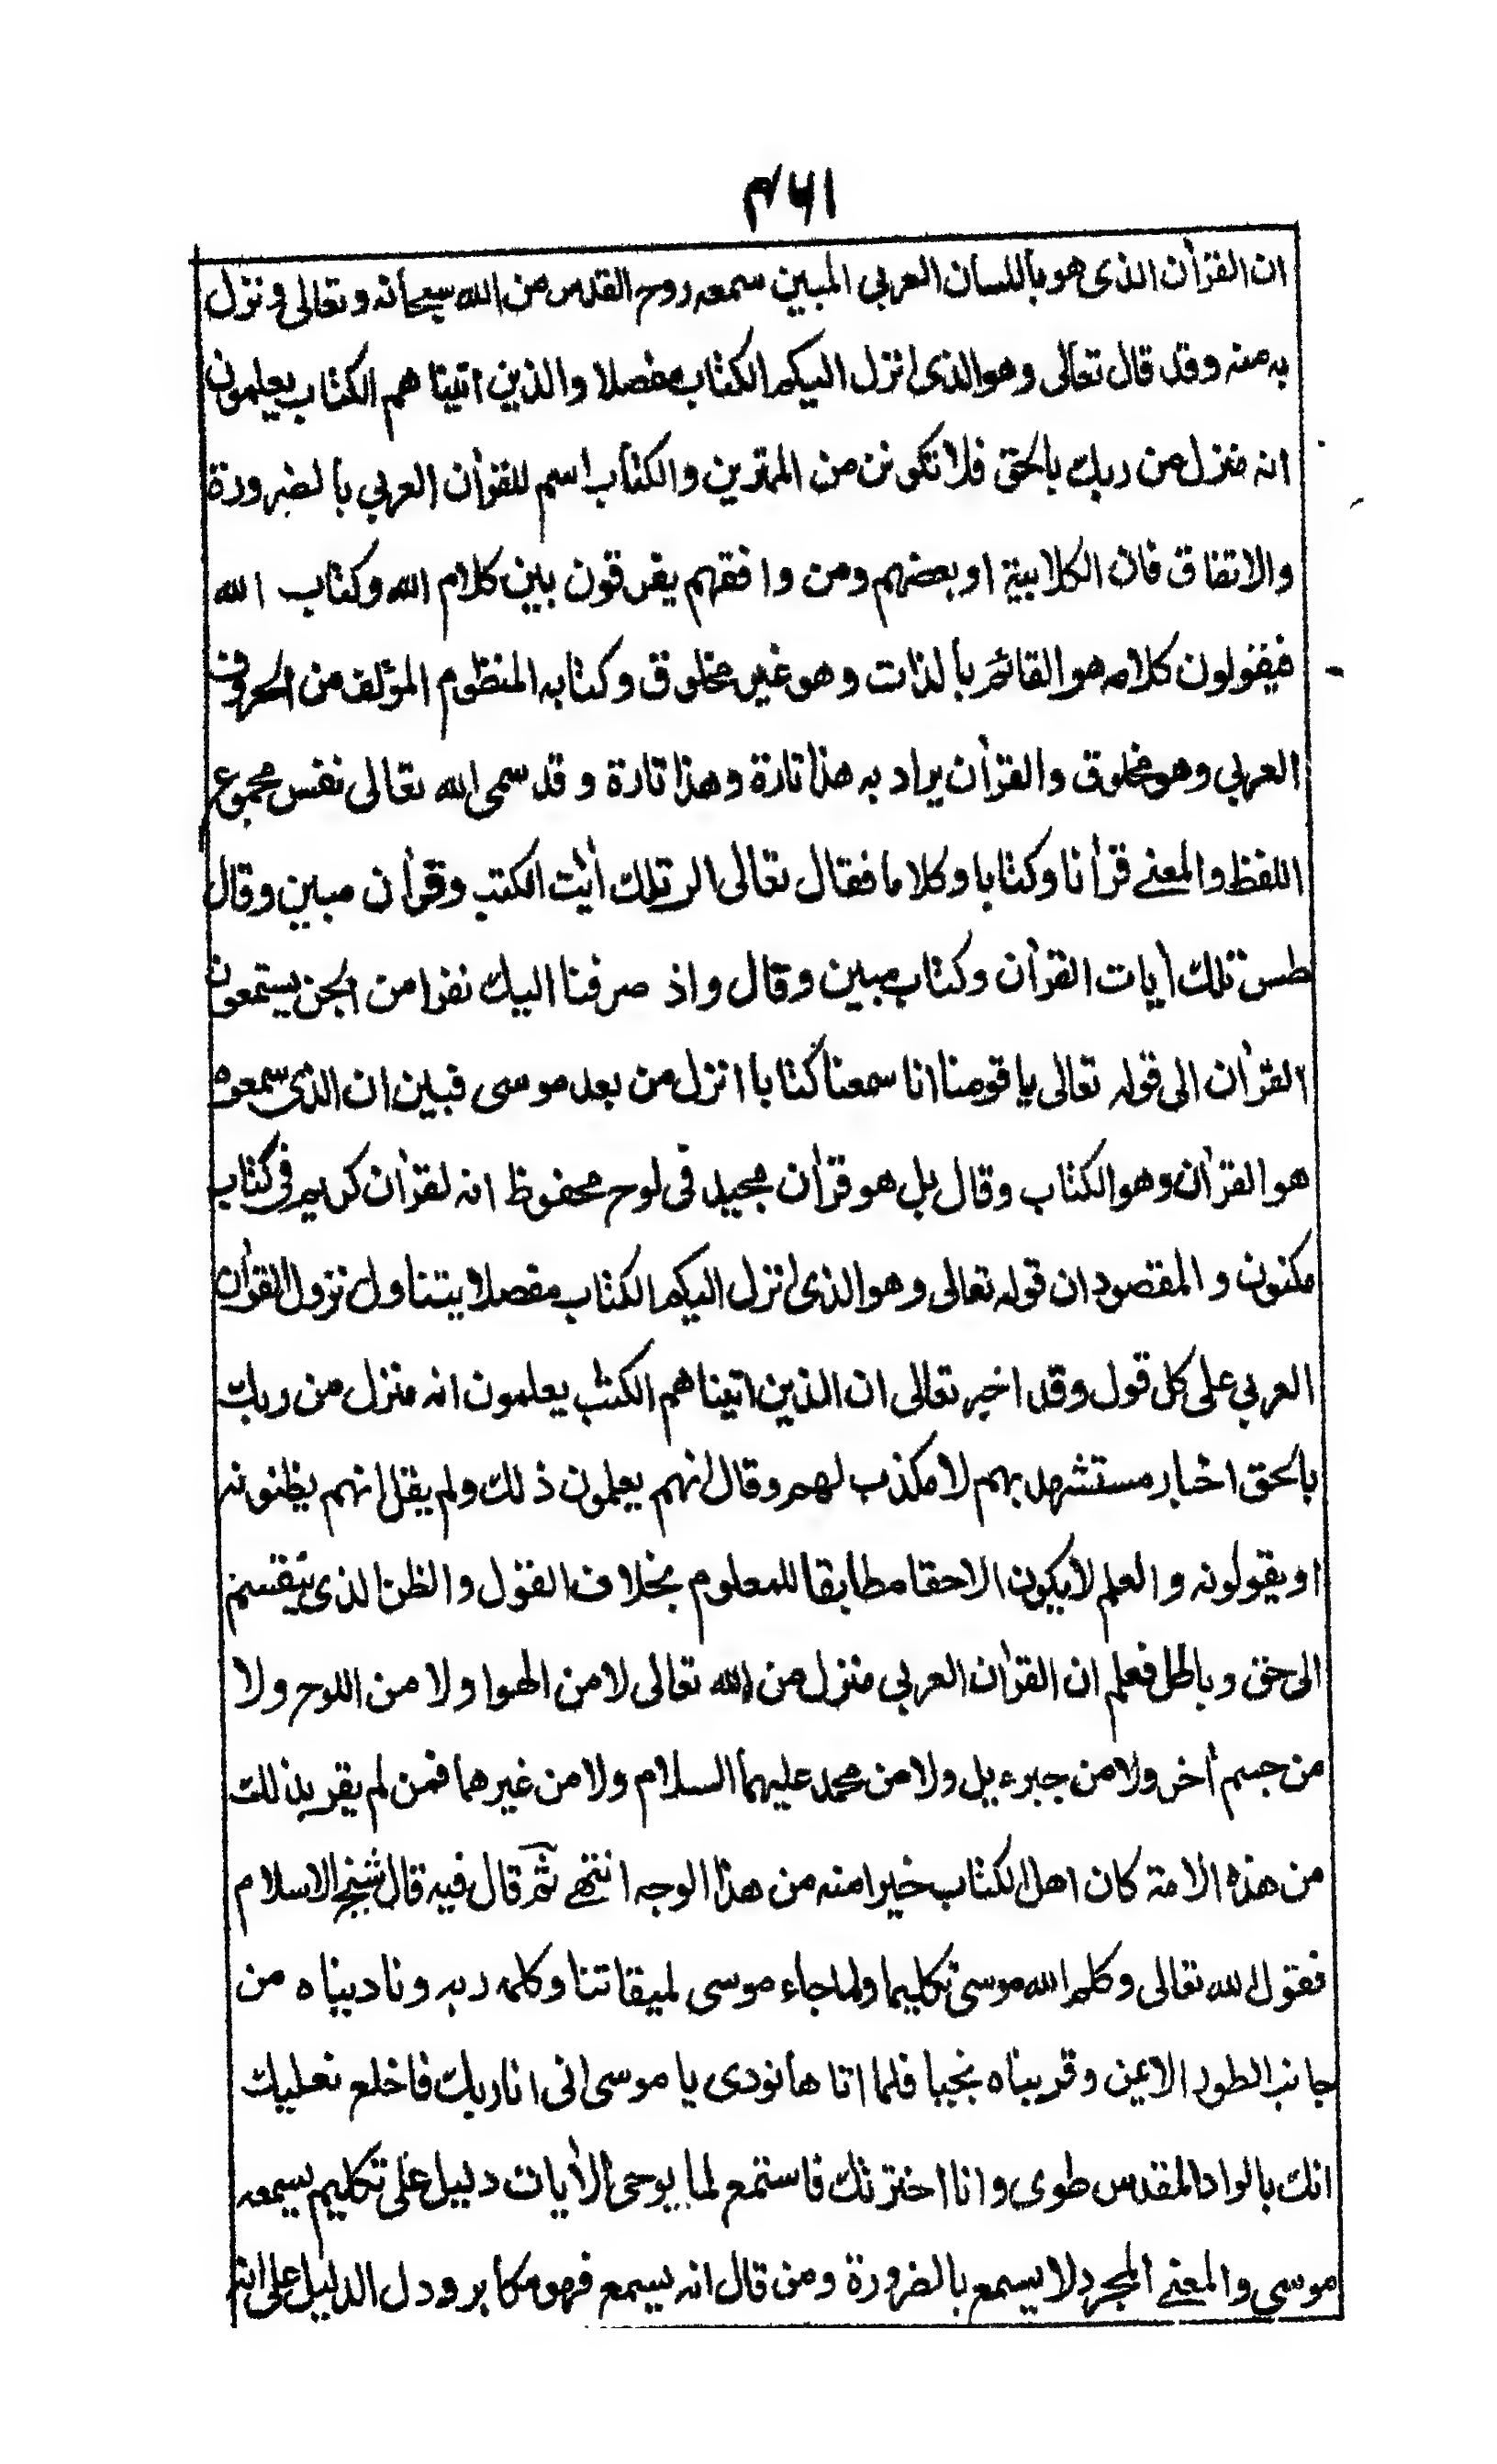 ۴۶۱
ان القرأن الذى هو باللسان العربي المبين سمعه روح القدس من الله سبحانه وتعالى ونزل
به منه وقد قال تعالى وهو الذى انزل اليكم الكتاب مفصلا والذين اتيناهم الكتاب يعلمون
انه منزل من ربك بالحق فلا تكونن من الممترين والكتاب اسم للقرأن العربي بالضرورة
والاتفاق فان الكلابية او بعضهم ومن وافقهم يفرقون بين كلام الله وكتاب الله
فيقولون كلامه هو القائم بالذات وهو غير مخلوق وكتابه المنظوم المؤلف من الحروف
العربي وهو مخلوق والقرأن يراد به هذا تارة وهذا تارة وقد سمى الله تعالى نفس مجموع
اللفظ والمعنے قرأنا وكتابا وكلاما فقال تعالى الر تلك أيت الكتب وقرأن مبين وقال
طس تلك أيات القرأن وكتاب مبين وقال واذ صرفنا اليك نفرا من الجن يستمعون
القرأن الى قوله تعالى يا قومنا انا سمعنا كتابا انزل من بعد موسى فبين ان الذى سمعوه
هو القرأن وهو الكتاب وقال بل هو قرأن مجيد فى لوح محفوظ انه لقرأن كريم فى كتاب
مكنون والمقصود ان قوله تعالى وهو الذى انزل اليكم الكتاب مفصلا يتناول نزول القرأن
العربي على كل قول وقد اخبر تعالى ان الذين اتيناهم الكتب يعلمون انه منزل من ربك
بالحق اخبار مستشهد بهم لا مكذب لهم وقال انهم يعلمون ذلك ولم يقل انهم يظنونه
او يقولونه والعلم لا يكون الا حقا مطابقا للمعلوم بخلاف القول والظن الذى ينقسم
الى حق وباطل فعلم ان القرأن العربي منزل من الله تعالى لا من الهوا ولا من اللوح ولا
من جسم أخر ولا من جبرءيل ولا من محمد عليهما السلام ولا من غيرهما فمن لم يقر بذلك
من هذه الامة كان اهل الكتاب خيرا منه من هذا الوجه انتهے ثم قال فيه قال شيخ الاسلام
فقول الله تعالى وكلم الله موسى تكليما ولما جاء موسى لميقاتنا وكلمه ربه وناديناه من
جانب الطور الايمن وقربناه نجيا فلما اتاها نودى يا موسى انى انا ربك فاخلع نعليك
انك بالواد المقدس طوى وانا اخترتك فاستمع لما يوحى الأيات دليل على تكليم يسمعه
موسى والمعنے المجرد لا يسمع بالضرورة ومن قال انه يسمع فهو مكابر ودل الدليل على انه